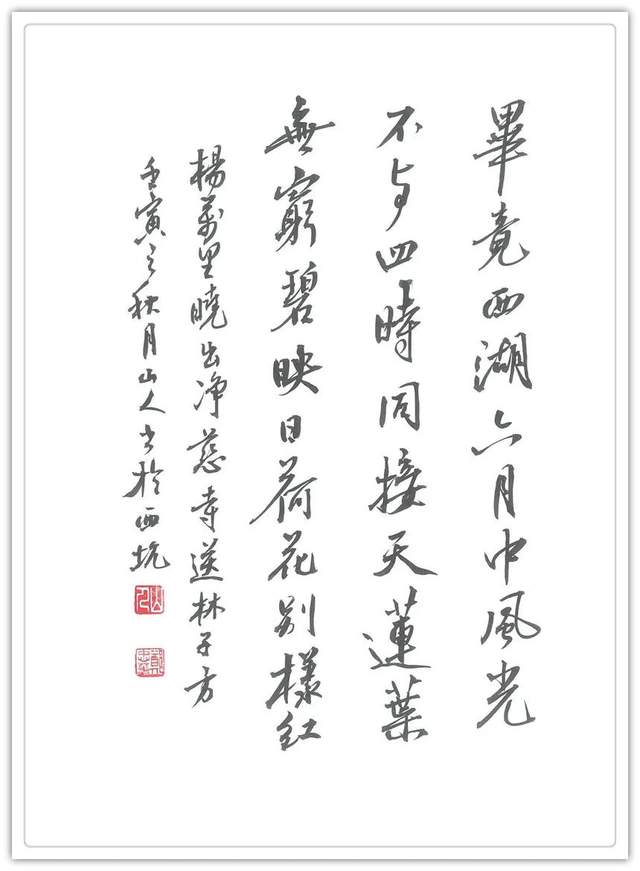 畢竟西湖六月中風光
不与四時同接天蓮葉
無窮碧映日荷花別樣紅
楊萬里曉出净慈寺送林子方
壬寅之秋月山人书於西坑